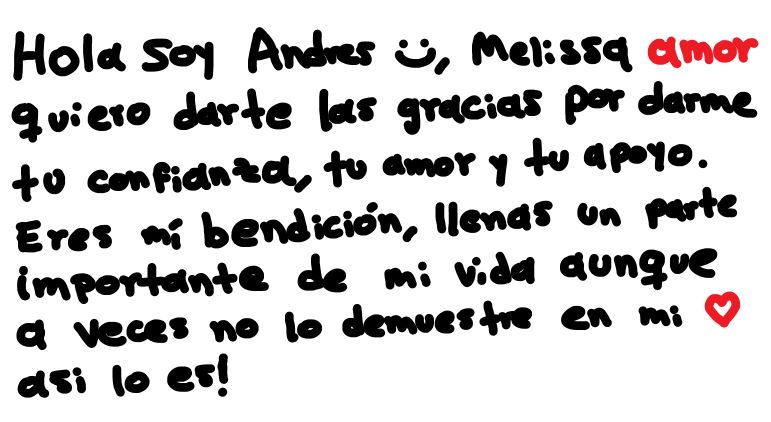 Hola soy Andres :), Melissa amor
quiero darte las gracias por darme
tu confianza, tu amor y tu apoyo.
Eres mí bendición, llenas un parte
importante de mi vida aunque
a veces no lo demuestre en mi ♡
asi lo es!